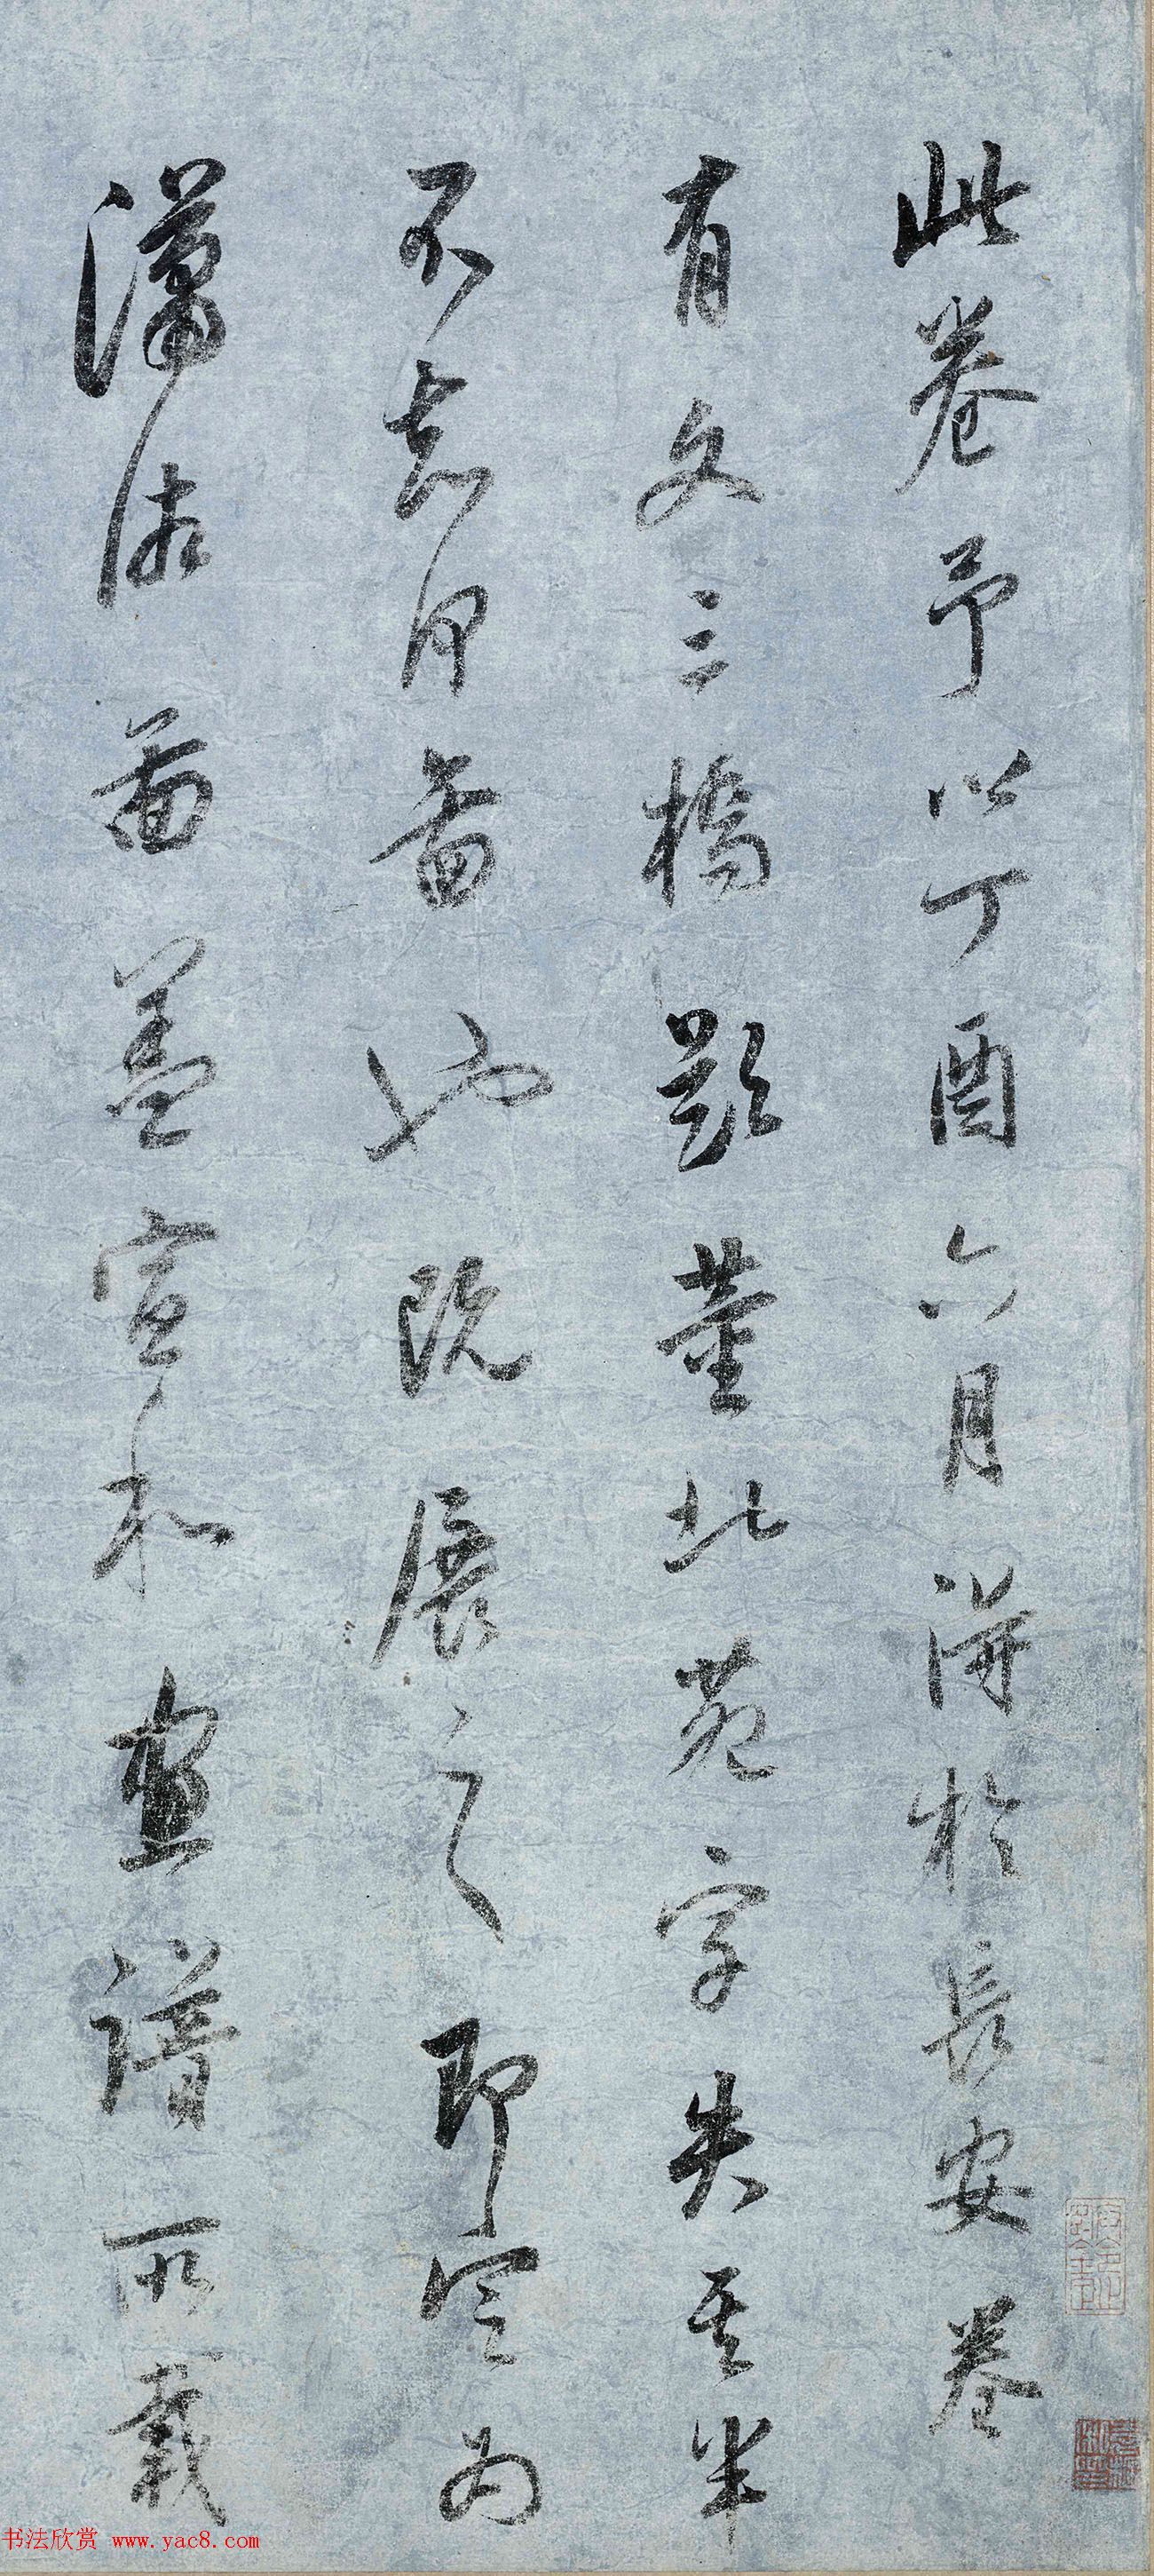 此卷予以丁酉六月得於長安卷
有文三橋題董北苑字失其半
不知何圖也既展之即定為
瀟湘圖蓋宣和畫譜所載
书法欣赏 www.yac8.com